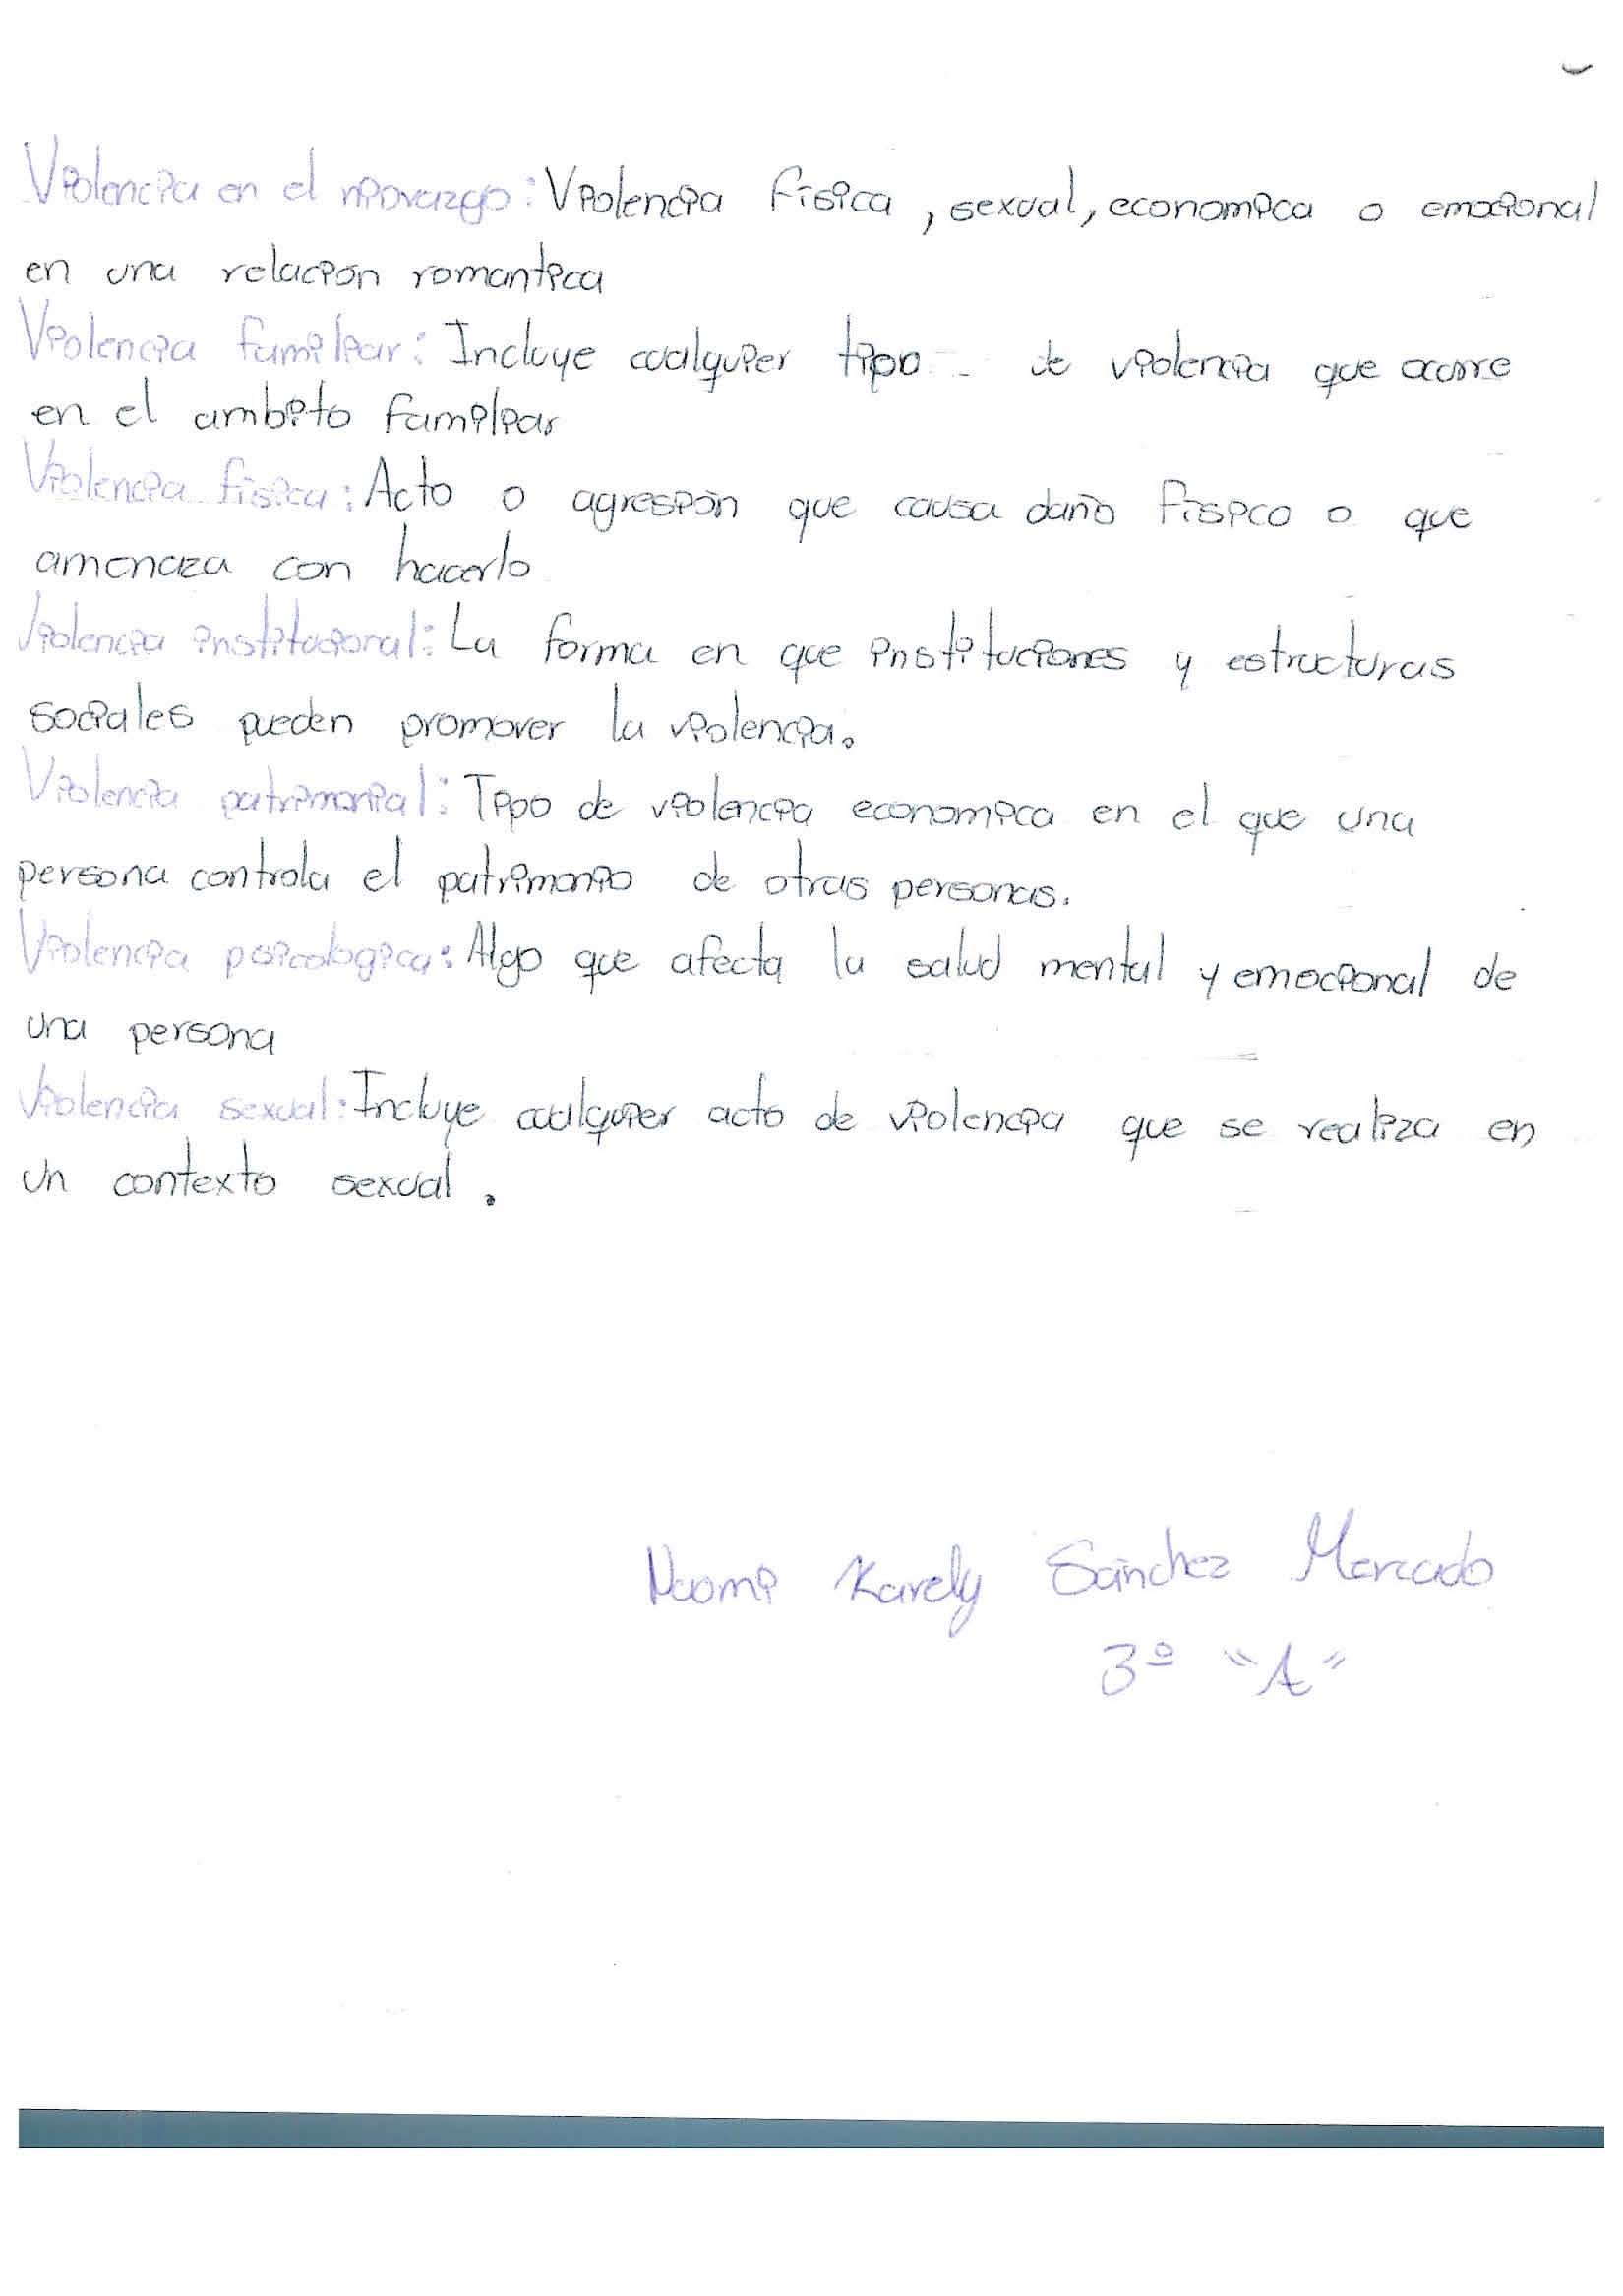 Violencia en el niovazgo: Violencia física, sexual, economica o emocional
en una relación romantica
Violencia familiar: Incluye cualquier tipo de violencia que ocurre
en el ambito familiar
Violencia física: Acto o agresión que causa daño físico o que
amenaza con hacerlo
Violencia institucional: La forma en que instituciones y estructuras
sociales pueden promover la violencia.
Violencia patrimonial: Tipo de violencia economica en el que una
persona controla el patrimonio de otras personas.
Violencia psicologica: Algo que afecta la salud mental y emocional de
una persona
Violencia sexual: Incluye cualquier acto de violencia que se realiza en
un contexto sexual.
Naomi Karely Sánchez Mercado
3º "A"